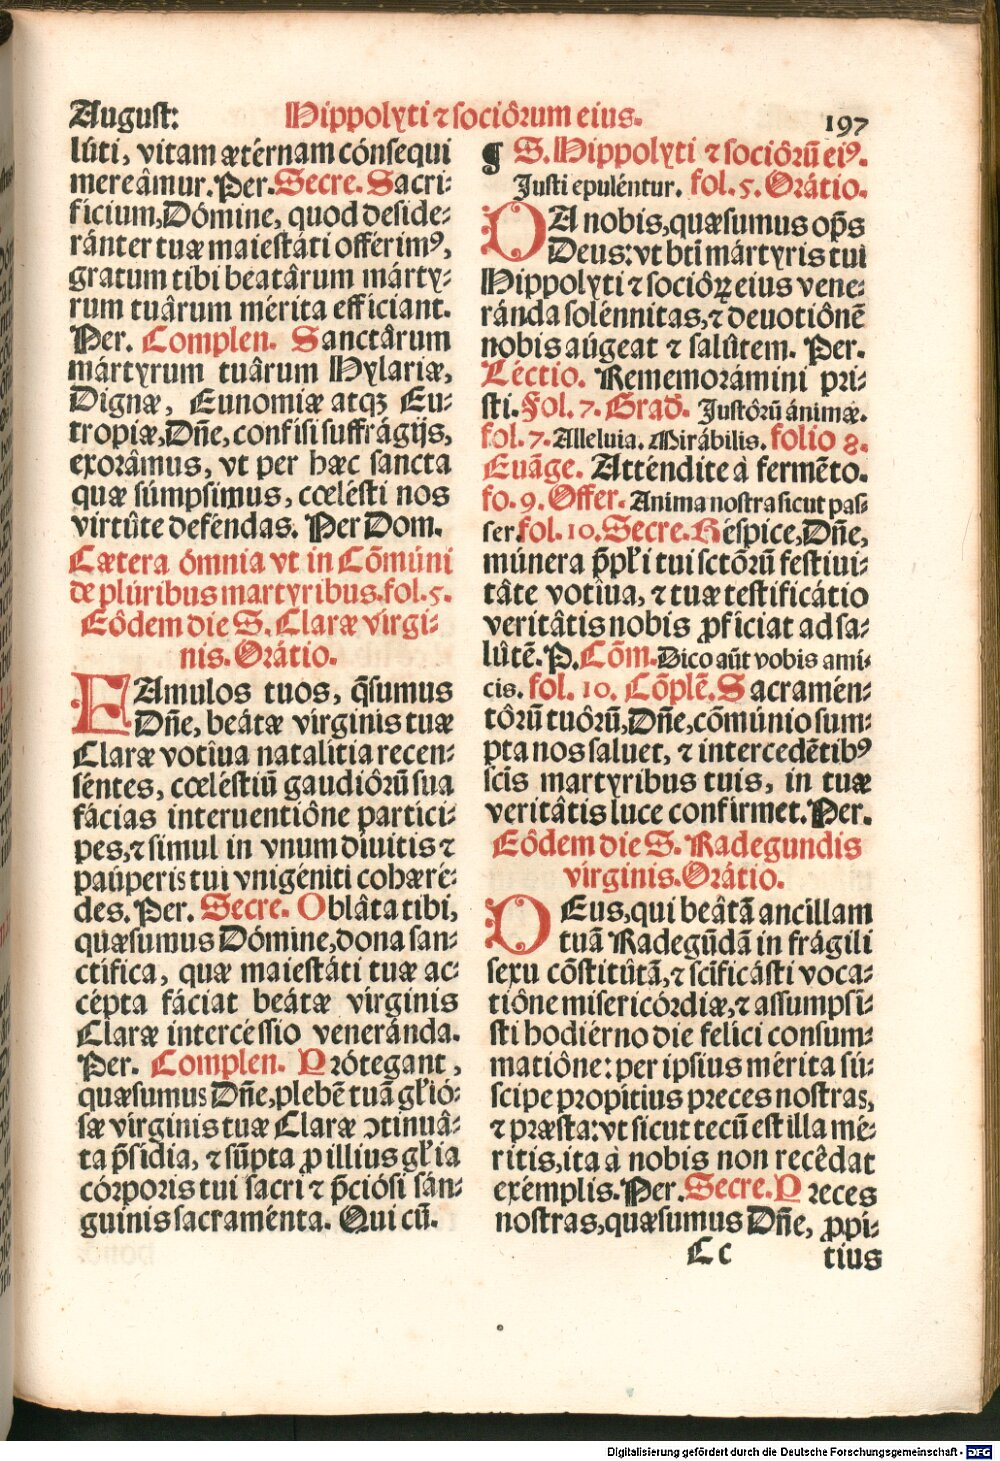 August: Hippolyti ⁊ sociôrum eius. 197
lúti, vitam ætérnam cónsequi
mereâmur. Per. Secre. Sacri-
ficium, Dómine, quod deside-
ránter tuæ maiestáti offérimꝰ,
gratum tibi beatârum márty-
rum tuârum mérita efficiant.
Per. Complen. Sanctârum
mártyrum tuârum Hylariæ,
Dignæ, Eunomiæ atqꝫ Eu-
tropiæ, Dñe, confisi suffrágijs,
exorâmus, vt per hæc sancta
quæ súmpsimus, cœlésti nos
virtûte deféndas. Per Dom.
Cætera ómnia vt in Cõmúni
de plúribus martyribus. fol. 5.
Eôdem die S. Claræ vírgi-
nis. Orátio.
FAmulos tuos, q̃sumus
Dñe, beátæ vírginis tuæ
Claræ votîua natalítia recen-
séntes, cœléstiũ gaudiôrũ sua
fácias interuentiône partíci-
pes, ⁊ simul in vnum diuitis ⁊
paúperis tui vnigéniti cohæré-
des. Per. Secre. Oblâta tibi,
quæsumus Dómine, dona san-
ctífica, quæ maiestáti tuæ ac-
cépta fáciat beátæ vírginis
Claræ intercéssio veneránda.
Per. Complen. Prótegant,
quæsumus Dñe, plebẽ tuã gl̃ió-
sæ vírginis tuæ Claræ ↄtinuâ-
ta p̃sídia, ⁊ sũpta ꝓ illius gl̃ia
córporis tui sacri ⁊ p̃ciósi sán-
guinis sacraménta. Qui cũ.
¶ S. Hippolyti ⁊ sociôrũ eiꝰ.
Justi epuléntur. fol. 5. Orátio.
DA nobis, quæsumus op̃s
Deus: vt bt̃i mártyris tui
Hippolyti ⁊ sociôꝝ eius vene-
ránda solénnitas, ⁊ deuotiônẽ
nobis aúgeat ⁊ salûtem. Per.
Léctio. Rememorámini pri-
sti. Fol. 7. Grad. Justôrũ ánimæ.
fol. 7. Alleluia. Mirábilis. folio 8.
Euãge. Atténdite à fermẽto.
fo. 9. Offer. Anima nostra sicut pas-
ser. fol. 10. Secre. Réspice, Dñe,
múnera p̃pl̃i tui sctôrũ festiui-
tâte votîua, ⁊ tuæ testificátio
veritâtis nobis ꝓficiat ad sa-
lûtẽ. P. Cõm. Dico aũt vobis ami-
cis. fol. 10. Cõplẽ. Sacramén-
tôrũ tuôrũ, Dñe, cõmúnio sum-
pta nos saluet, ⁊ intercedẽtibꝰ
scĩs martyribus tuis, in tuæ
veritâtis luce confirmet. Per.
Eôdem die S. Radegundis
vírginis. Orátio.
DEus, qui beâtã ancillam
tuã Radegũdã in frágili
sexu cõstitûtã, ⁊ scĩficásti voca-
tiône misericórdiæ, ⁊ assumpsí-
sti hodiérno die felici consum-
matiône: per ipsius mérita sú-
scipe propítius preces nostras,
⁊ præsta: vt sicut tecũ est illa mé-
ritis, ita à nobis non recêdat
exémplis. Per. Secre. Preces
nostras, quæsumus Dñe, ꝓpí-
Cc tius
Digitalisierung gefördert durch die Deutsche Forschungsgemeinschaft - DFG